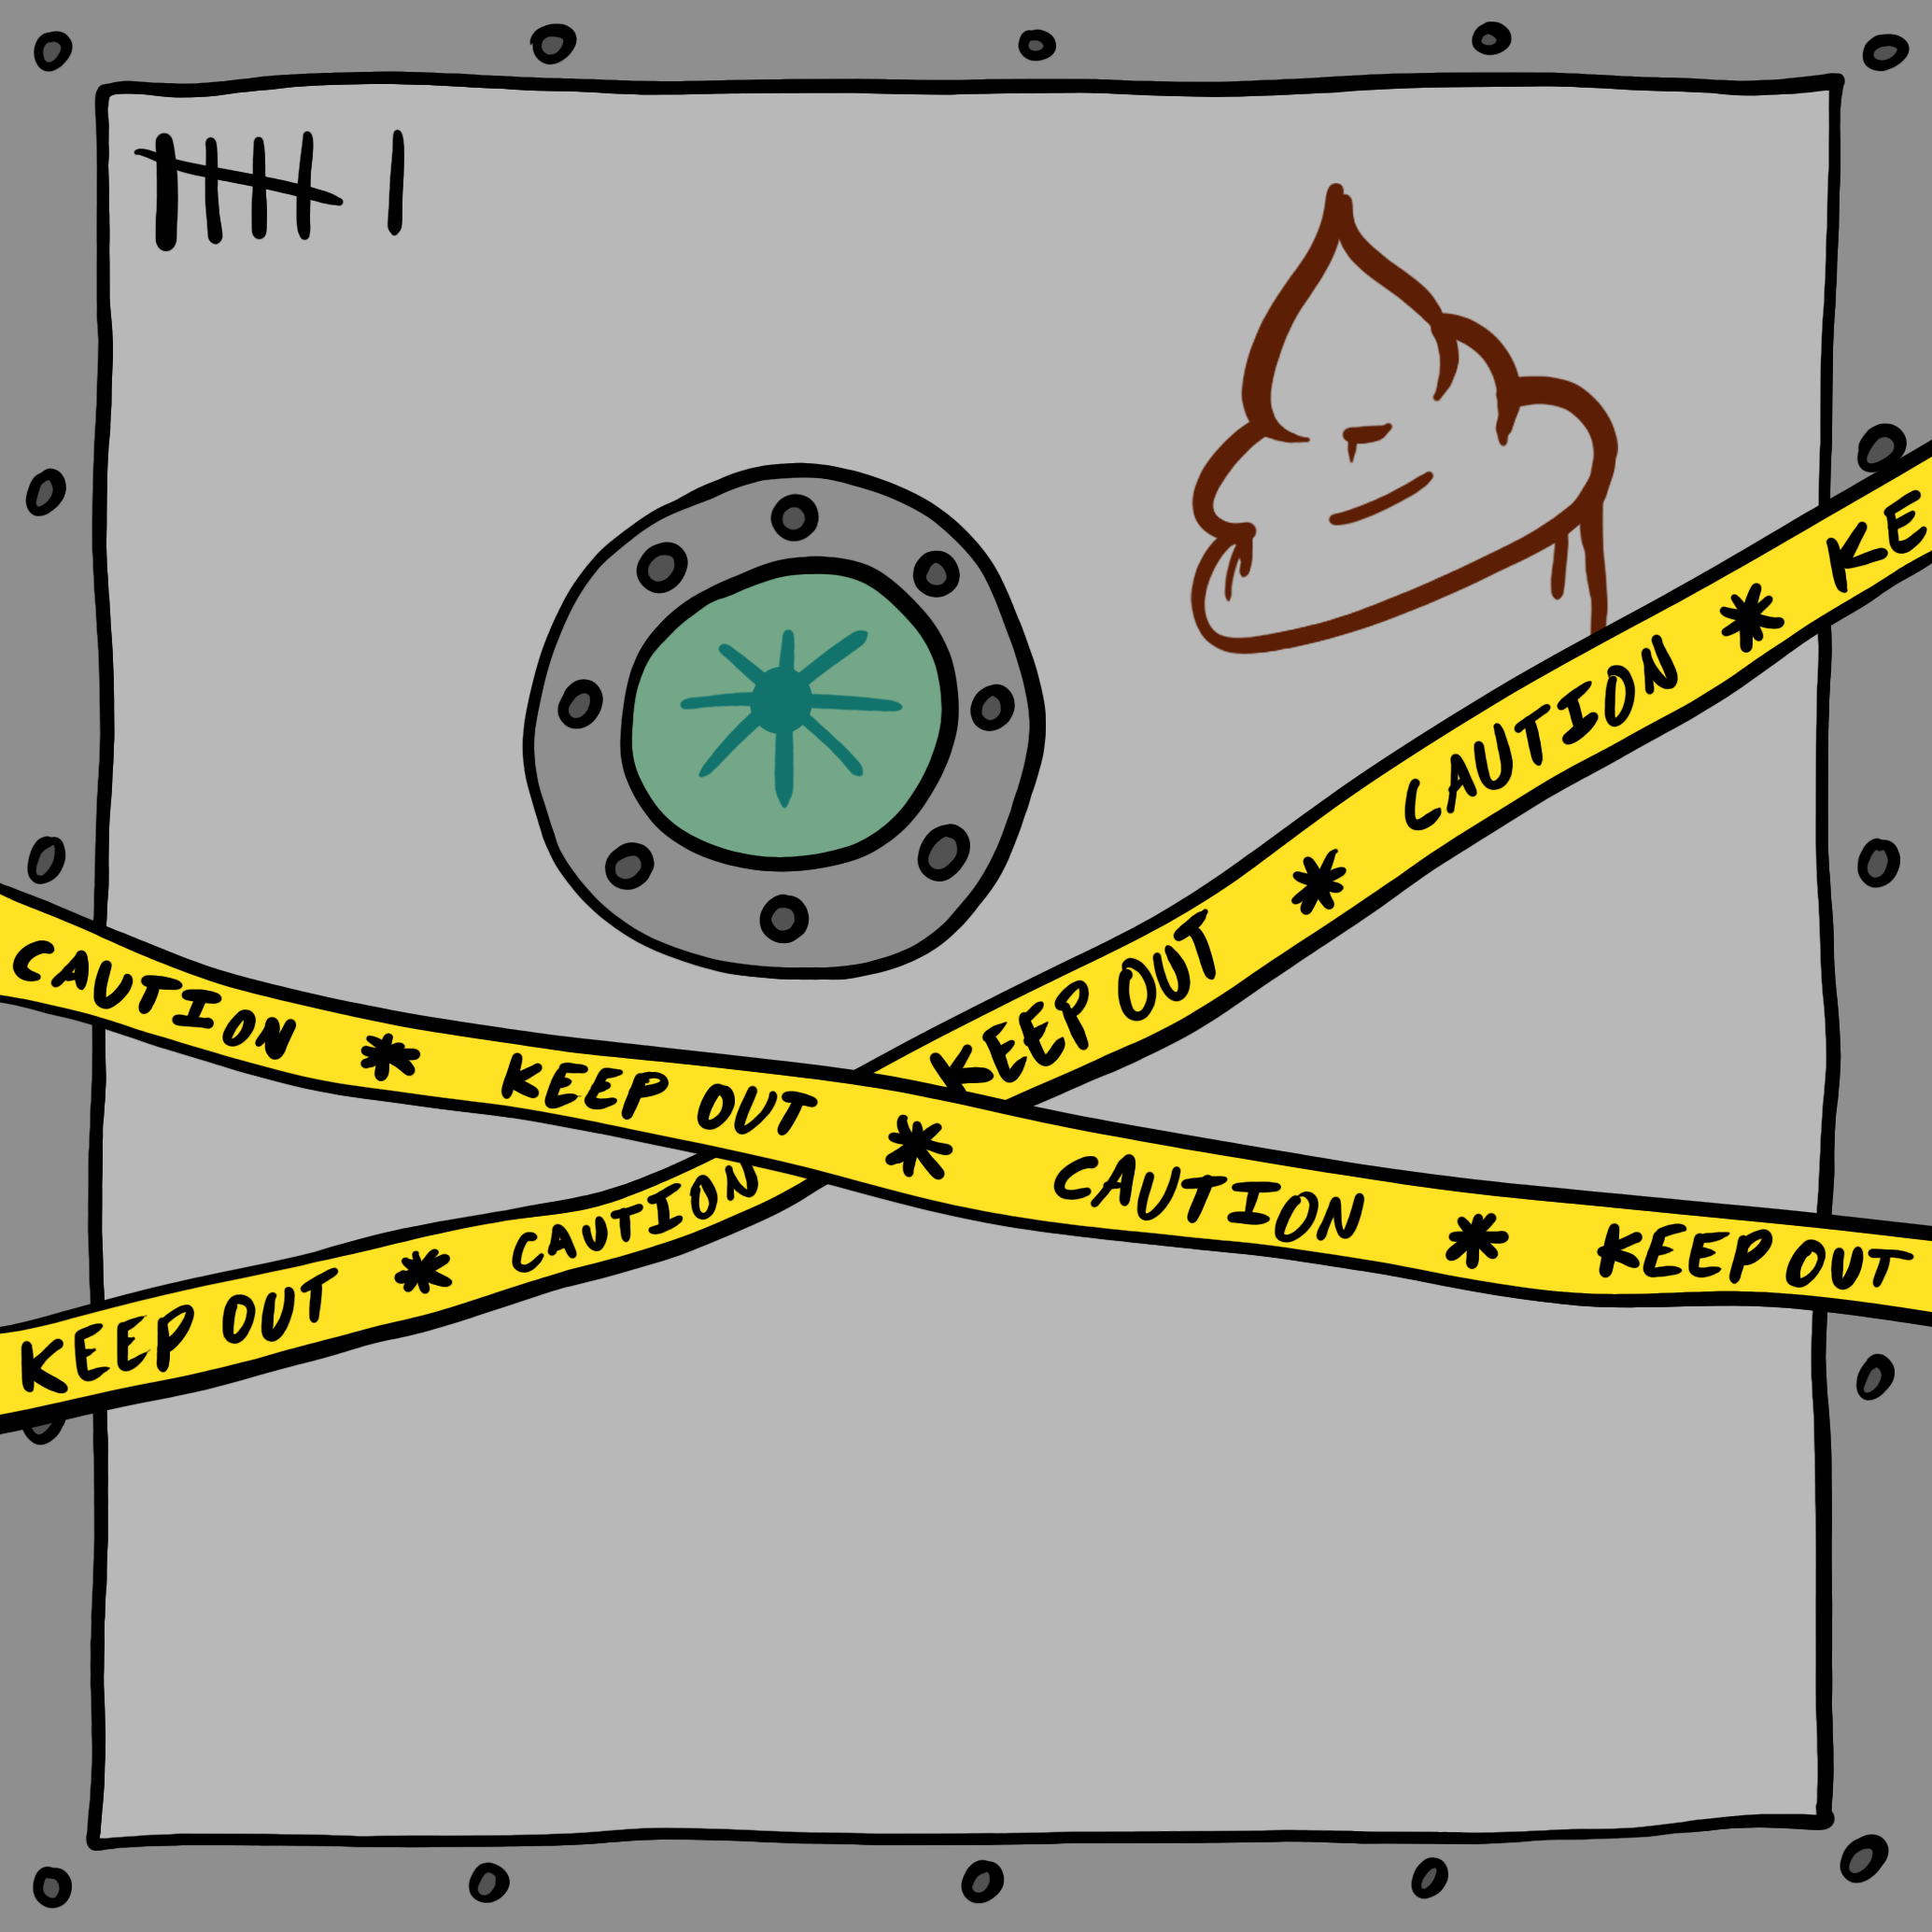 CAUTION * KEEP OUT * CAUTION * KEEP OUT
KEEP OUT * CAUTION KEEP OUT * CAUTION * KE